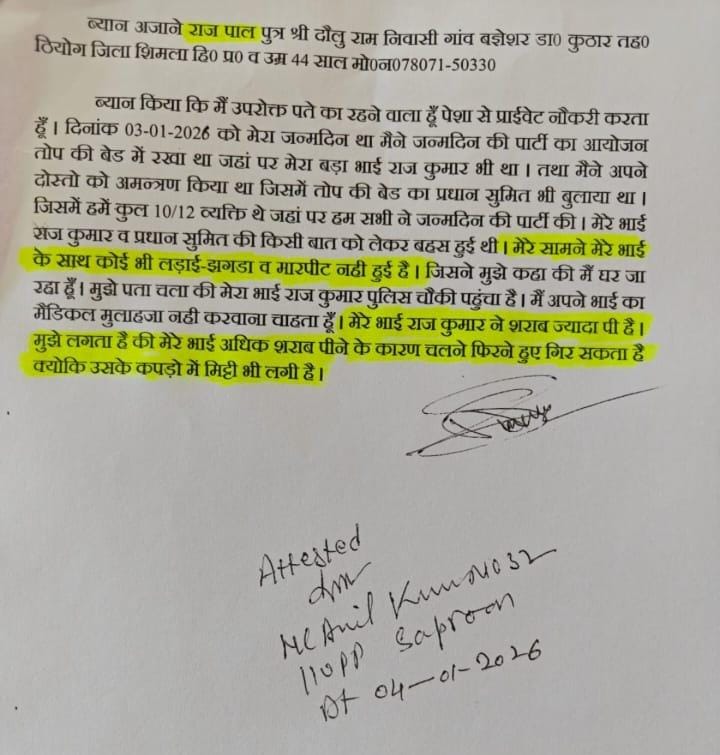 ब्यान अजाने राज पाल पुत्र श्री दौलु राम निवासी गांव बज्ञेशर डा0 कुठार तह0
ठियोग जिला शिमला हि0 प्र0 व उम्र 44 साल मो0न078071-50330
ब्यान किया कि मैं उपरोक्त पते का रहने वाला हूँ पेशा से प्राईवेट नौकरी करता
हूँ। दिनांक 03-01-2026 को मेरा जन्मदिन था मैने जन्मदिन की पार्टी का आयोजन
तोप की बेड में रखा था जहां पर मेरा बड़ा भाई राज कुमार भी था। तथा मैने अपने
दोस्तो को अमन्त्रण किया था जिसमें तोप की बेड का प्रधान सुमित भी बुलाया था।
जिसमें हमें कुल 10/12 व्यक्ति थे जहां पर हम सभी ने जन्मदिन की पार्टी की। मेरे भाई
राज कुमार व प्रधान सुमित की किसी बात को लेकर बहस हुई थी। मेरे सामने मेरे भाई
के साथ कोई भी लड़ाई-झगडा व मारपीट नही हुई है। जिसने मुझे कहा की मैं घर जा
रहा हूँ। मुझे पता चला की मेरा भाई राज कुमार पुलिस चौकी पहुंचा है। मैं अपने भाई का
मैडिकल मुलाहजा नही करवाना चाहता हूँ। मेरे भाई राज कुमार ने शराब ज्यादा पी है।
मुझे लगता है की मेरे भाई अधिक शराब पीने के कारण चलने फिरने हुए गिर सकता है
क्योकि उसके कपड़ो में मिट्टी भी लगी है।
Attested
HC Anil Kumar
Saproon
Dt 04-01-2026